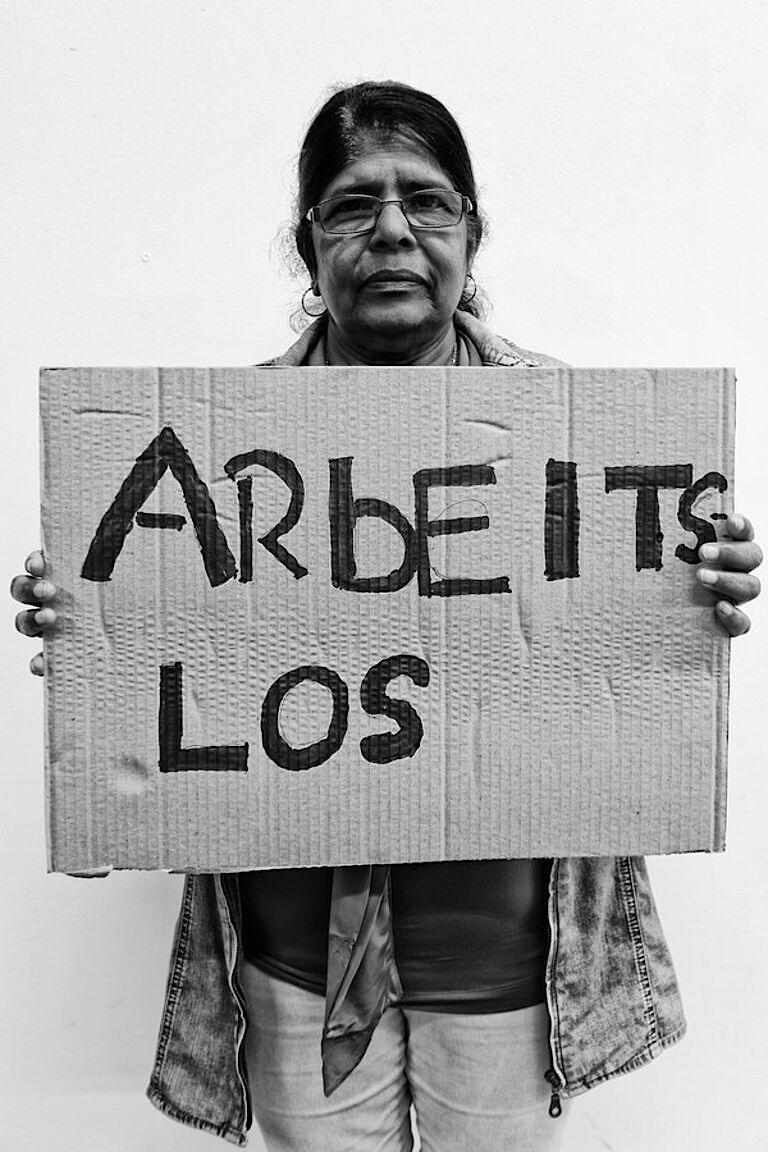 ARbEITS
LOS